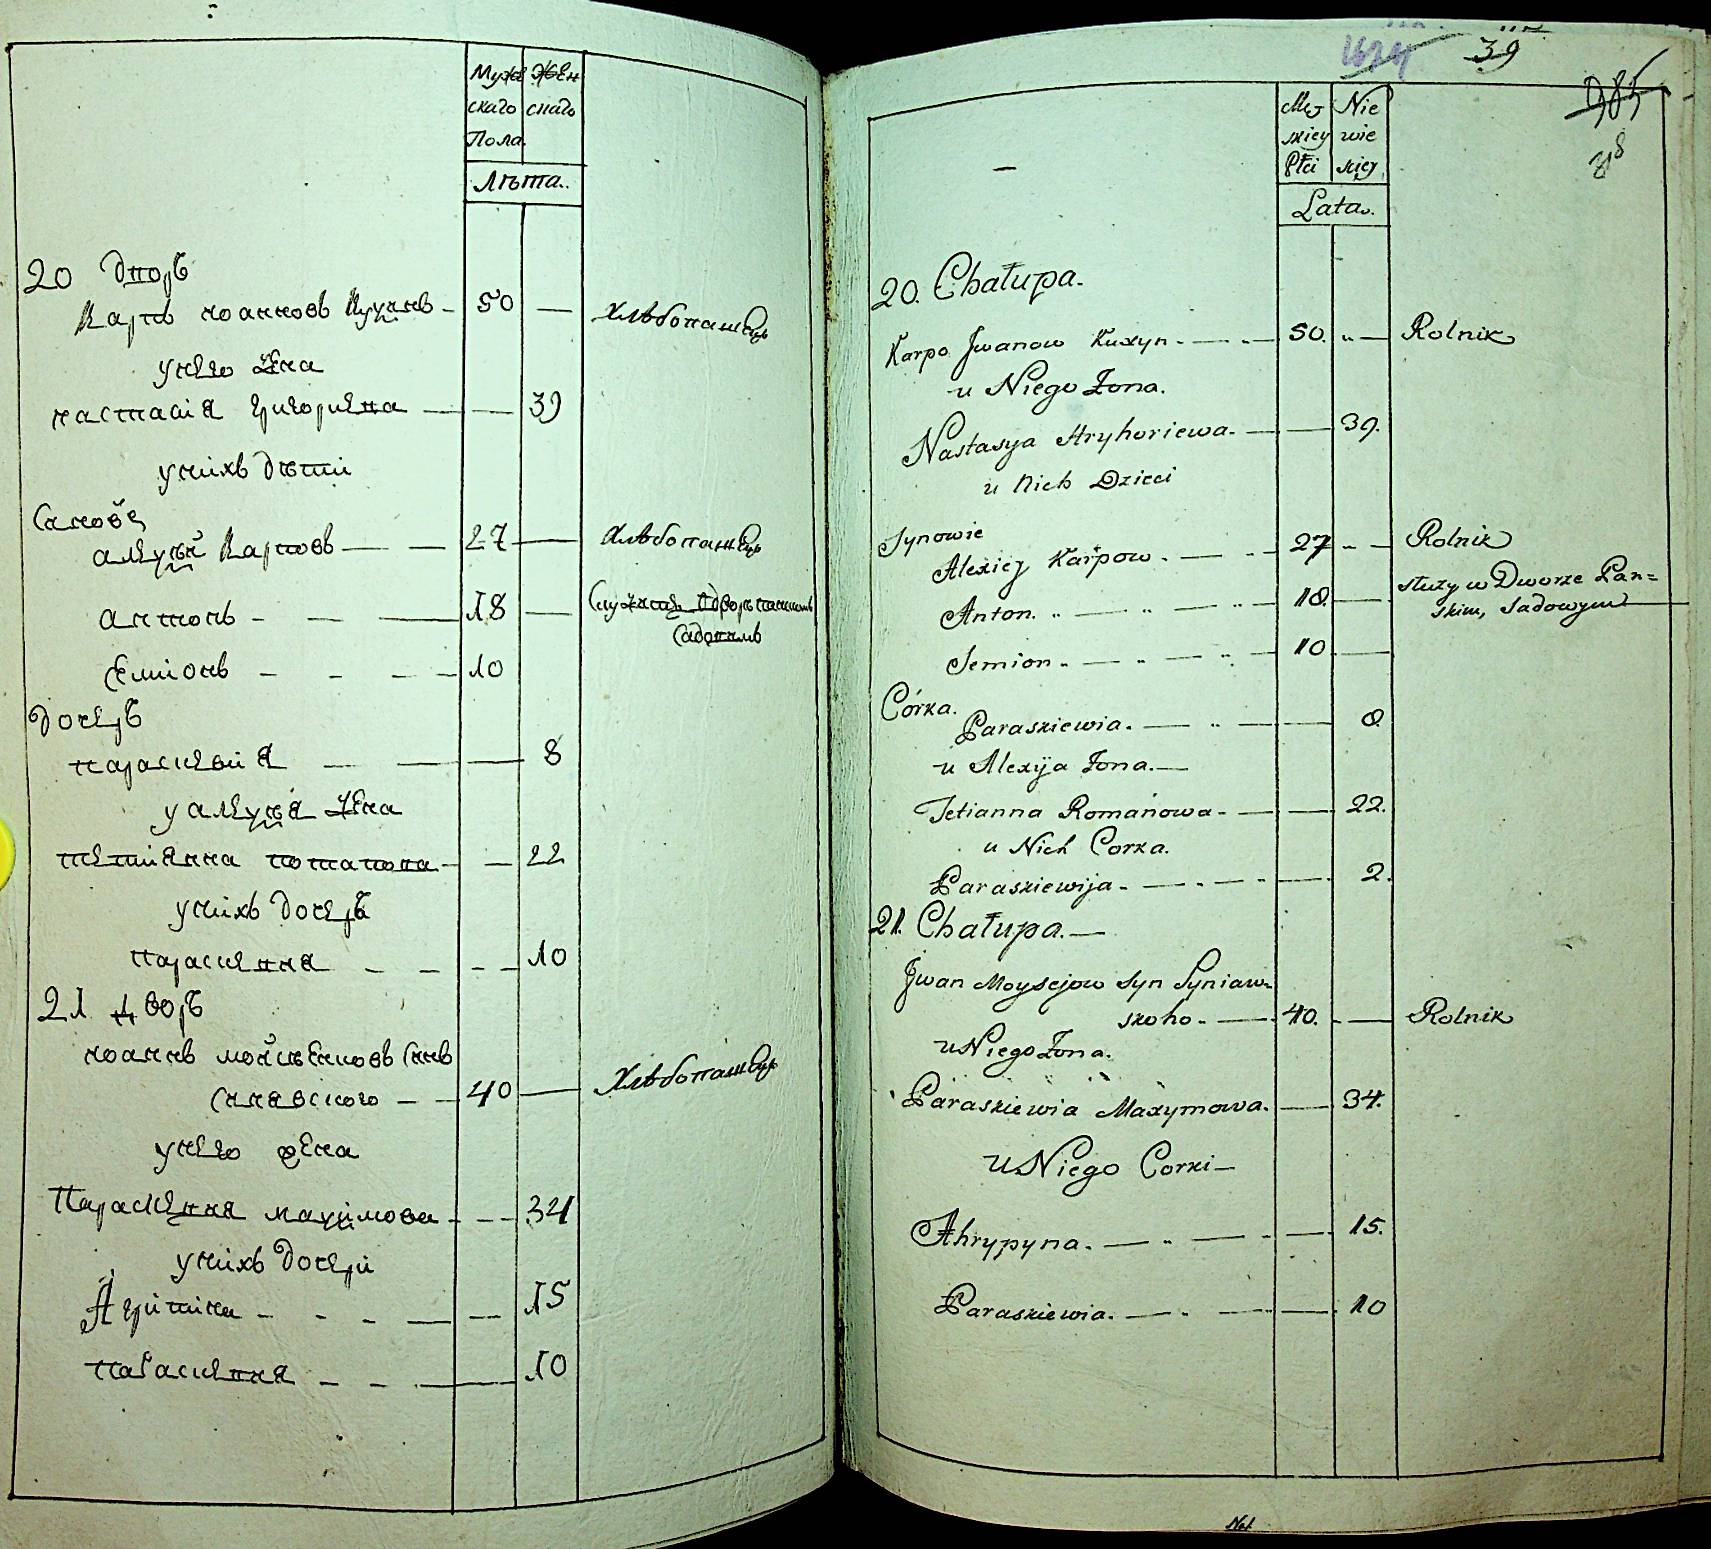 Муже Жен
скаго скаго
Пола
Лѣта..
20 дворъ
Карпъ иоанновъ Кухинъ - 50 — хлѣбопашецъ
унего жена
настасія григориева — — 39
унихъ дѣти
Синовѣ
алеѯѣй Карповъ — — 27 — хлѣбопашецъ
антонъ - - — 18 — Служитъ вдворѣ панскомъ
Садовимъ
семіонъ - - - - 10
дочеръ
параскевиія — — — 8
у алеѯѣя жена
тетіянна потапова - — 22
унихъ дочеръ
параскевия - - - - 10
21 дворъ
иоаннъ мойсѣенковъ синъ
синявского - - 40 — хлѣбопашецъ
унего жена
Параскевия маѯімова - - - 34
унихъ дочери
Агріпина - - - — - 15
параскевия - - — — 10
1674 39
985
38
Męz Nie
skiey wie
Płci skiej
Lata.
20. Chałupa.
Karpo Jwanow Kuxyn - — - - 50. „ — Rolnik
u Niego Żona.
Nastasya Hryhoriewa. — — 39.
u Nich Dzieci
Synowie
Alexiej Karpow. - — - 27 - — Rolnik
Anton. „ — „ — „ 18. — służy w Dworze Pań=
skim, Sadowym —
Semion „ — „ — „ 10 —
Córka.
Paraskiewia. — „ — — 8
u Alexija Żona. —
Tetianna Romanowa - — — 22.
u Nich Corka.
Paraskiewija - — - - - — 2.
21. Chałupa. —
Jwan Moysejow syn Syniaw-
skoho. — 40. — Rolnik
u Niego Żona.
Paraskiewia Maxymowa. — 34.
u Niego Corki —
Ahrypyna. — „ — - — 15.
Paraskiewia. — „ — — 10